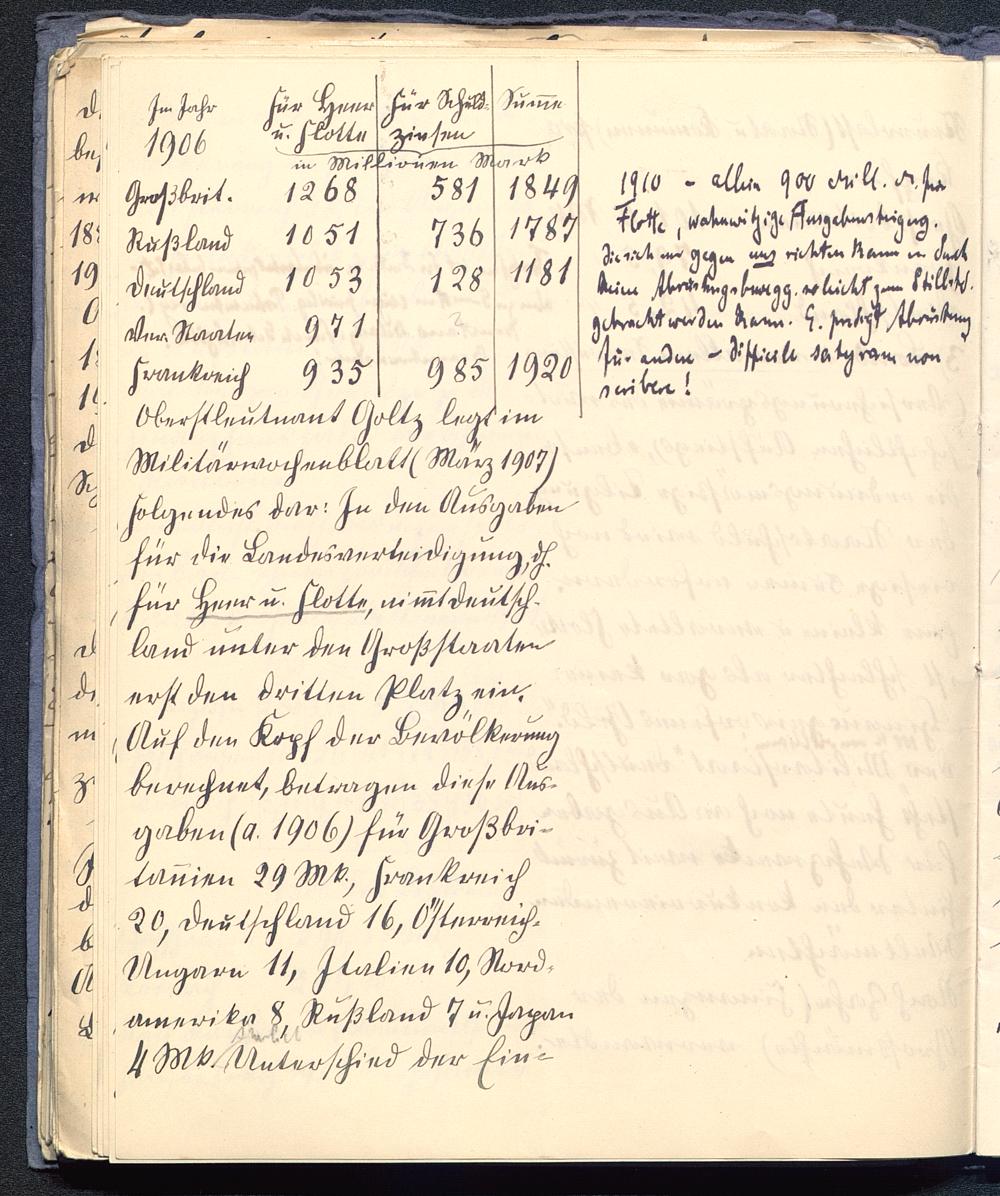 Im Jahr Für Heer Für Schuld- Summe
1906 u. Flotte zinsen
in Millionen Mark
Großbrit. 1268 581 1849
Rußland 1051 736 1787
Deutschland 1053 128 1181
Ver. Staaten 971 ?
Frankreich 935 985 1920
1910 – allein 900 Mill. M. für
Flotte, wahnwitzige Ausgabensteigerung.
die sich nur gegen uns richten kann u. durch
keine Abrüstungsbewegg. zum Stillstd.
gebracht werden kann. E. predigt Abrüstung
für andere – difficile satyram non
scribere!
Oberstleutnant Goltz legt im
Militärwochenblatt (März 1907)
folgendes dar: In den Ausgaben
für die Landesverteidigung, d.h.
für Heer u. Flotte, nimt Deutsch-
land unter den Großstaaten
erst den dritten Platz ein.
Auf den Kopf der Bevölkerung
berechnet, betragen diese Aus-
gaben (a. 1906) für Großbri-
tannien 29 Mk., Frankreich
20, Deutschland 16, Österreich-
Ungarn 11, Italien 10, Nord-
amerika 8, Rußland 7 u. Japan
4 Mk. Unterschied der Ein-